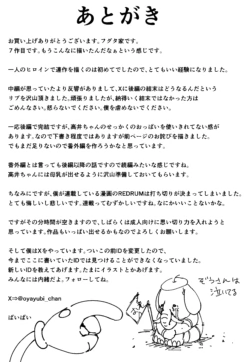 あとがき
お買い上げありがとうございます。フグタ家です。
7作目です。もうこんなに描いたんだなぁという感じです。
一人のヒロインで連作を描くのは初めてでしたので、とてもいい経験になりました。
中編が思っていたより反響がありまして、Xに後編の結末はどうなるんだという
リプを沢山頂きました。頑張りましたが、納得いく結末ではなかった方は
ごめんなさい。怒らないでください。僕を虐めないでください。
一応後編で完結ですが、高井ちゃんのせっかくのおっぱいを使いきれてない感が
あります。なので下書き程度ではありますが次ページのお詫びを描きました。
でもまだ足りないので番外編を作ろうかなと思っています。
番外編とは言っても後編以降の話ですので続編みたいな感じですね。
高井ちゃんには母乳が出せるように沢山準備しておいてもらいます。
ちなみにですが、僕が連載している漫画のREDRUMは打ち切りが決まってしまいました。
とても悔しいし悲しいです。連載ってむずかしいですね。なにかいいことないかな。
ですがその分時間が空きますので、しばらくは成人向けに思い切り力を入れようと
思っています。作品もいっぱい出せるかもなのでよろしくお願いします。
そして僕はXをやっています。ついこの前IDを変更したので、
今までここに書いていたIDでは見つけることができなくなっていました。
新しいIDを教えてあげます。たまにイラストとかあげます。
みんなには内緒だよ。フォローしてね。
X⇒@oyayubi_chan
ばいばい
ぞうさんは
泣いてる